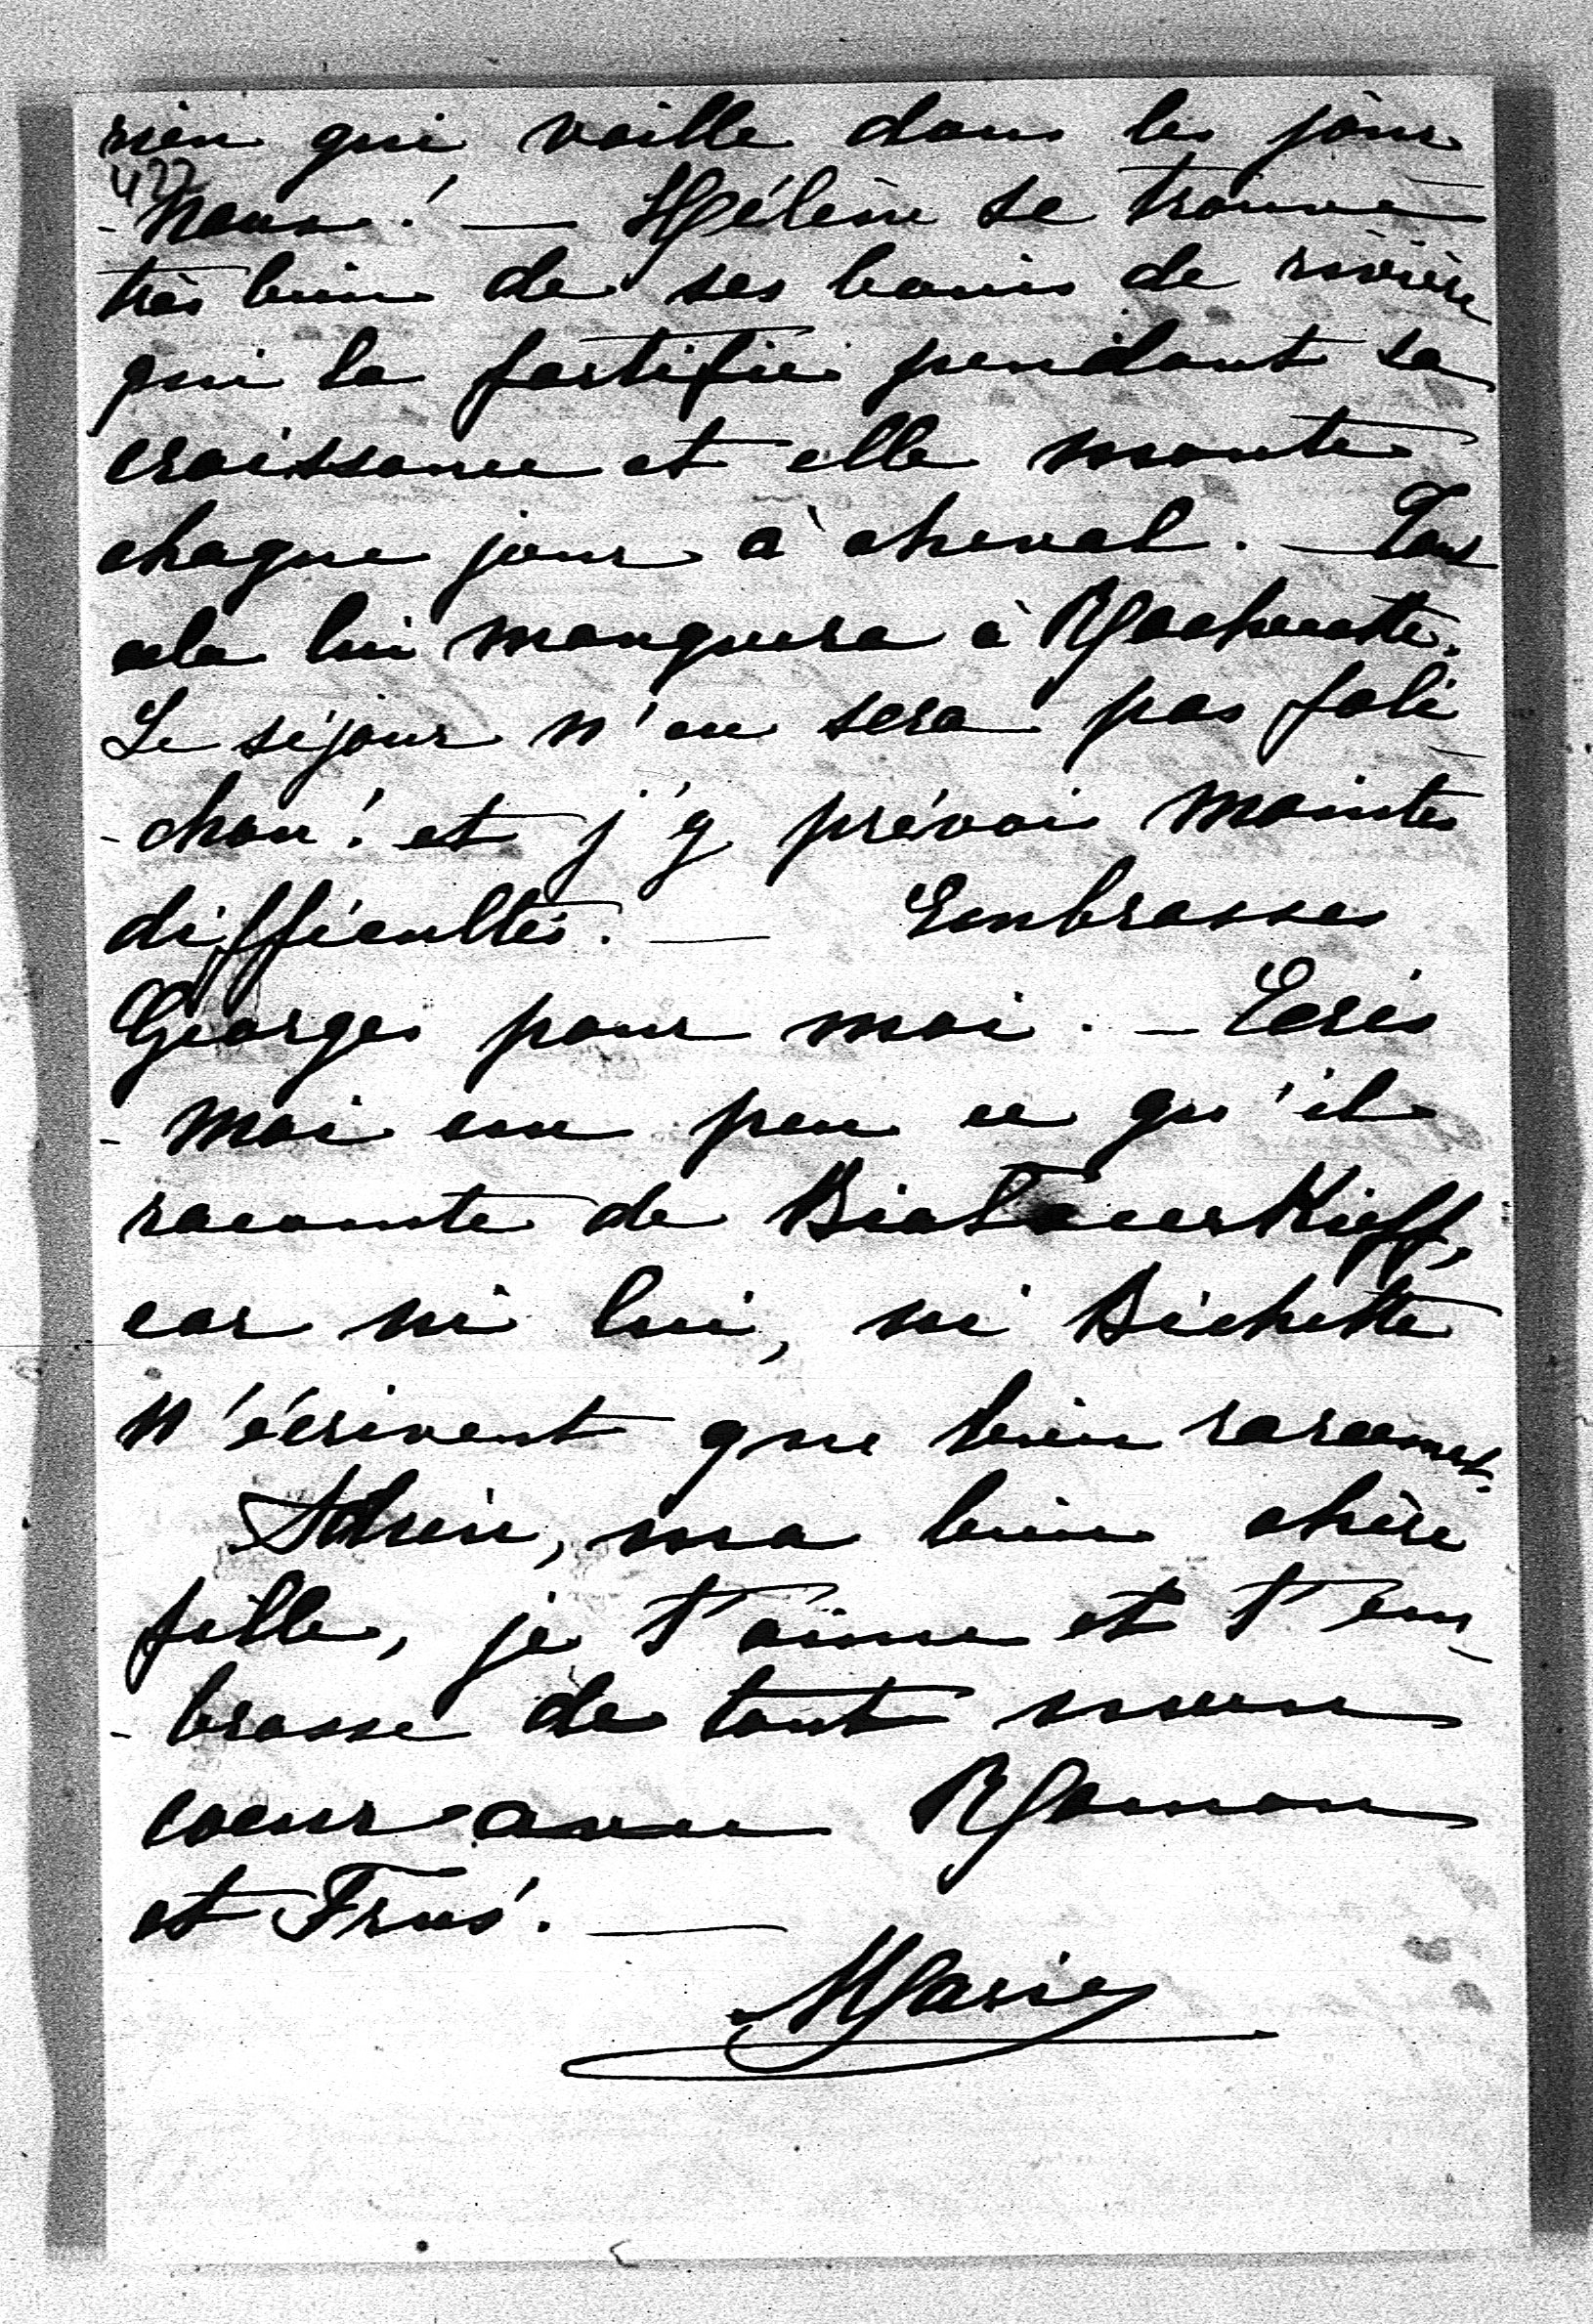 rien qui vaille dans les jour
422
-naux! — Hélène se trouve
très bien de ses bains de rivière
qui la fortifie pendant sa
croissance et elle monte
chaque jour à cheval. — Tout
cela lui manquera à
Le séjour n'en sera pas foli-
-chon! et j'y prévois maintes
difficultés. — Embrasses
Georges pour moi. — Ecris
-moi un peu ce qu'il
raconte de
car ni lui, ni Bichette
n'écrivent que bien rarement.
Adieu, ma bien chère
fille, je t'aime et t'em-
-brasse de tout mon
coeur avec
et
Marie